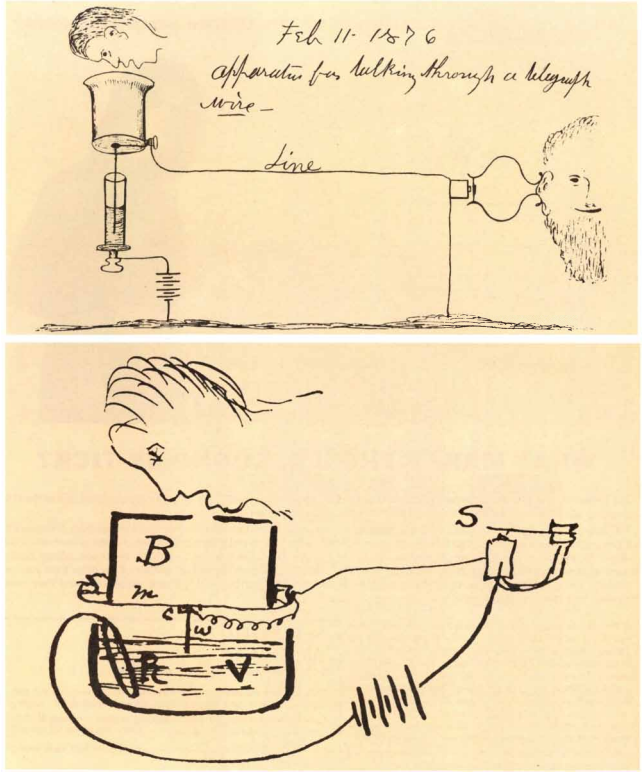 Feb 11- 1876
apparatus for talking through a telegraph
wire -
Line
S
B
m
c
w
R V